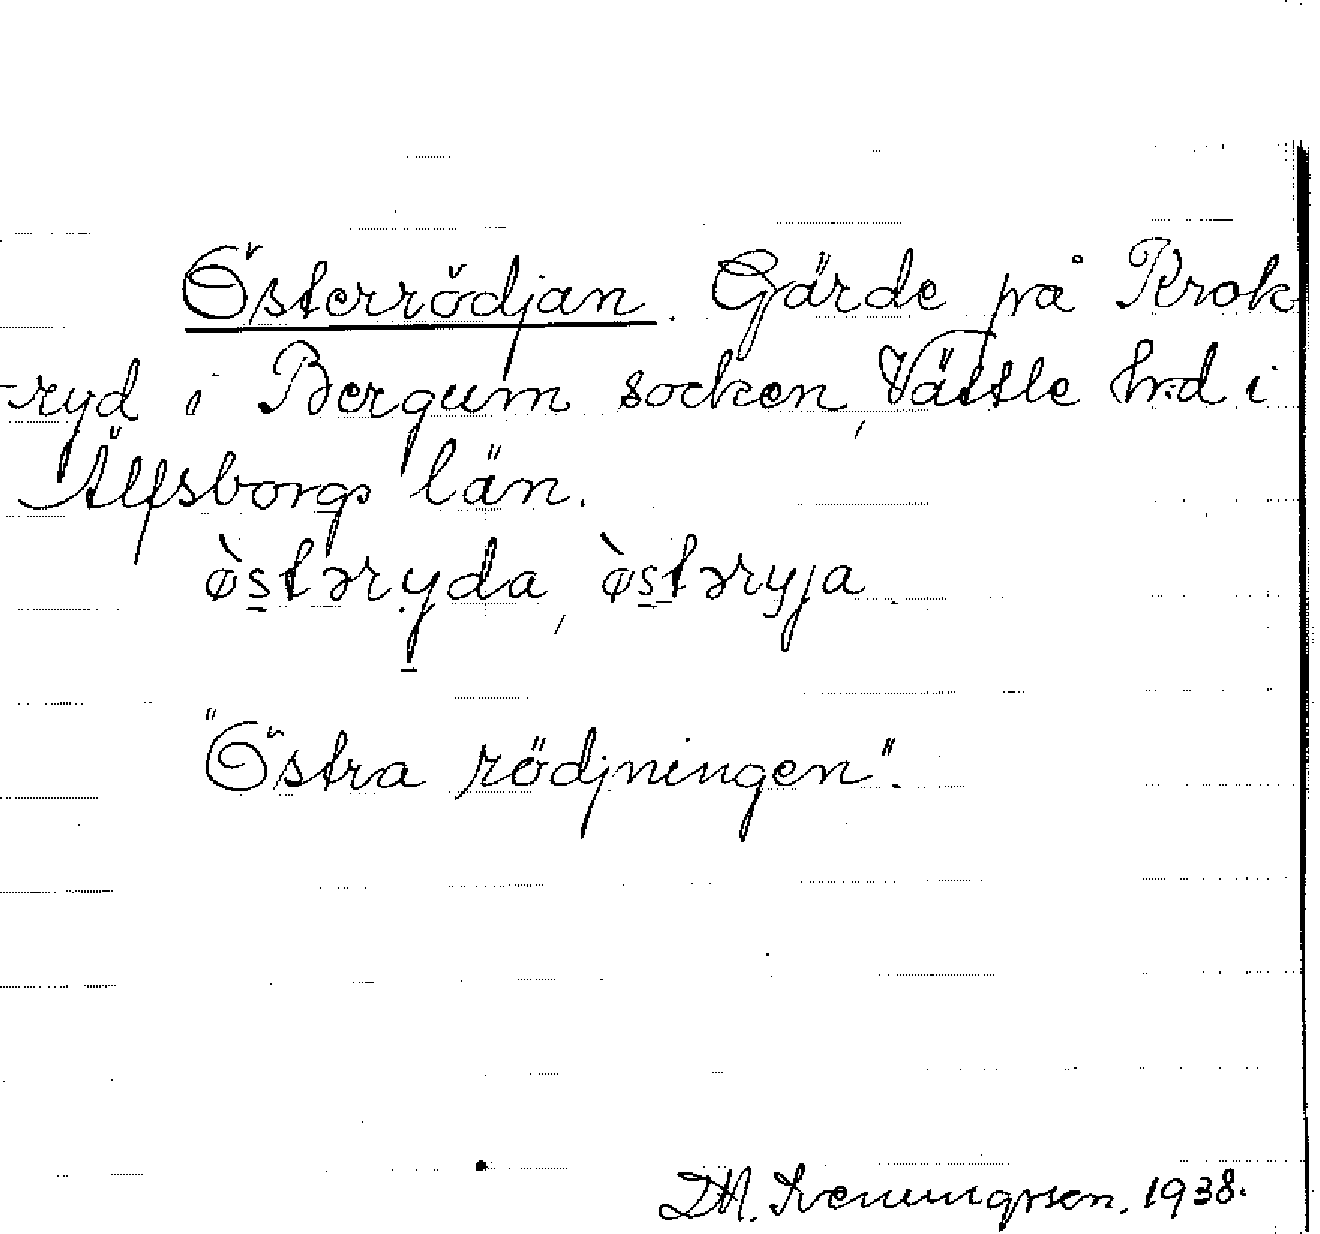 Österrödjan. Gärde på Krok
-ryd i Bergum socken, Vättle h:d i
Älfsborgs län.
ø̀stəryda, ø̀stəryja.
"Östra rödjningen".
D.A. Svenungsson. 1938.